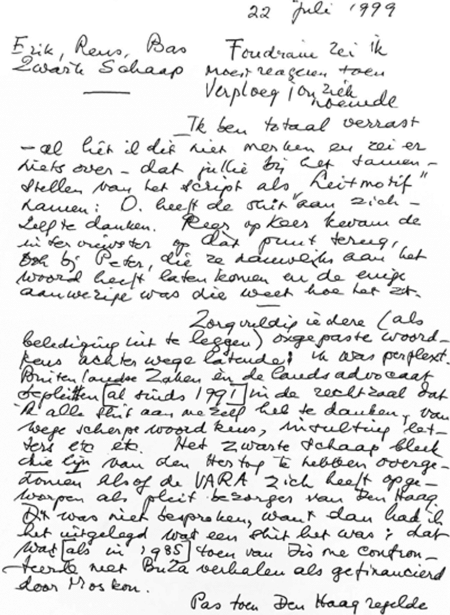 22 Juli 1999
Erik, Rens, Bas Foudraine zei ik
Zwarte Schaap moest reageren toen
Verploeg jon ziek
noemde
Ik ben totaal verrast
- al liet ik dit niet merken en zei er
niets over - dat jullie bij het samen-
stellen van het script als "Leitmotif"
namen: O. heeft de shit aan zich-
zelf te danken. Keer op keer kwam de
interviewster op dat punt terug,
ook bij Peter, die ze nauwelijks aan het
woord heeft laten komen en de enige
aanwezige was die weet hoe het zit.
Zorgvuldig iedere (als
belediging uit te leggen) ongepaste woord-
keus achterwege latende; ik was perplext.
Buitenlandse Zaken en de landsadvocaat
bepleitten al sinds 1991 in de rechtzaal dat
ik alle shit aan mezelf heb te danken, van
wege scherpe woordkeus, insulting let-
ters etc etc. Het Zwarte Schaap bleek
die lijn van den Hertog te hebben overge-
nomen alsof de VARA zich heeft opge-
worpen als pleitbezorger van Den Haag
Dit was niet besproken, want dan had ik
het uitgelegd wat een shit het was; dat
was als in 1985 toen van Dis me confron-
teerde met BuZa verhalen als gefinancierd
door Moskou.
Pas toen Den Haag regelde